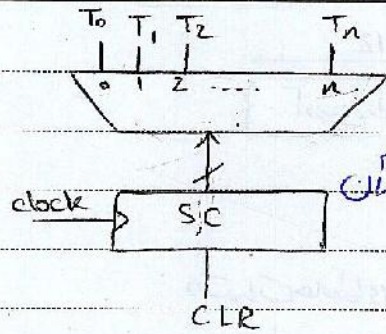 T₀ T₁ T₂ Tₙ
0 1 2 ..... n
clock
S,C
CLR